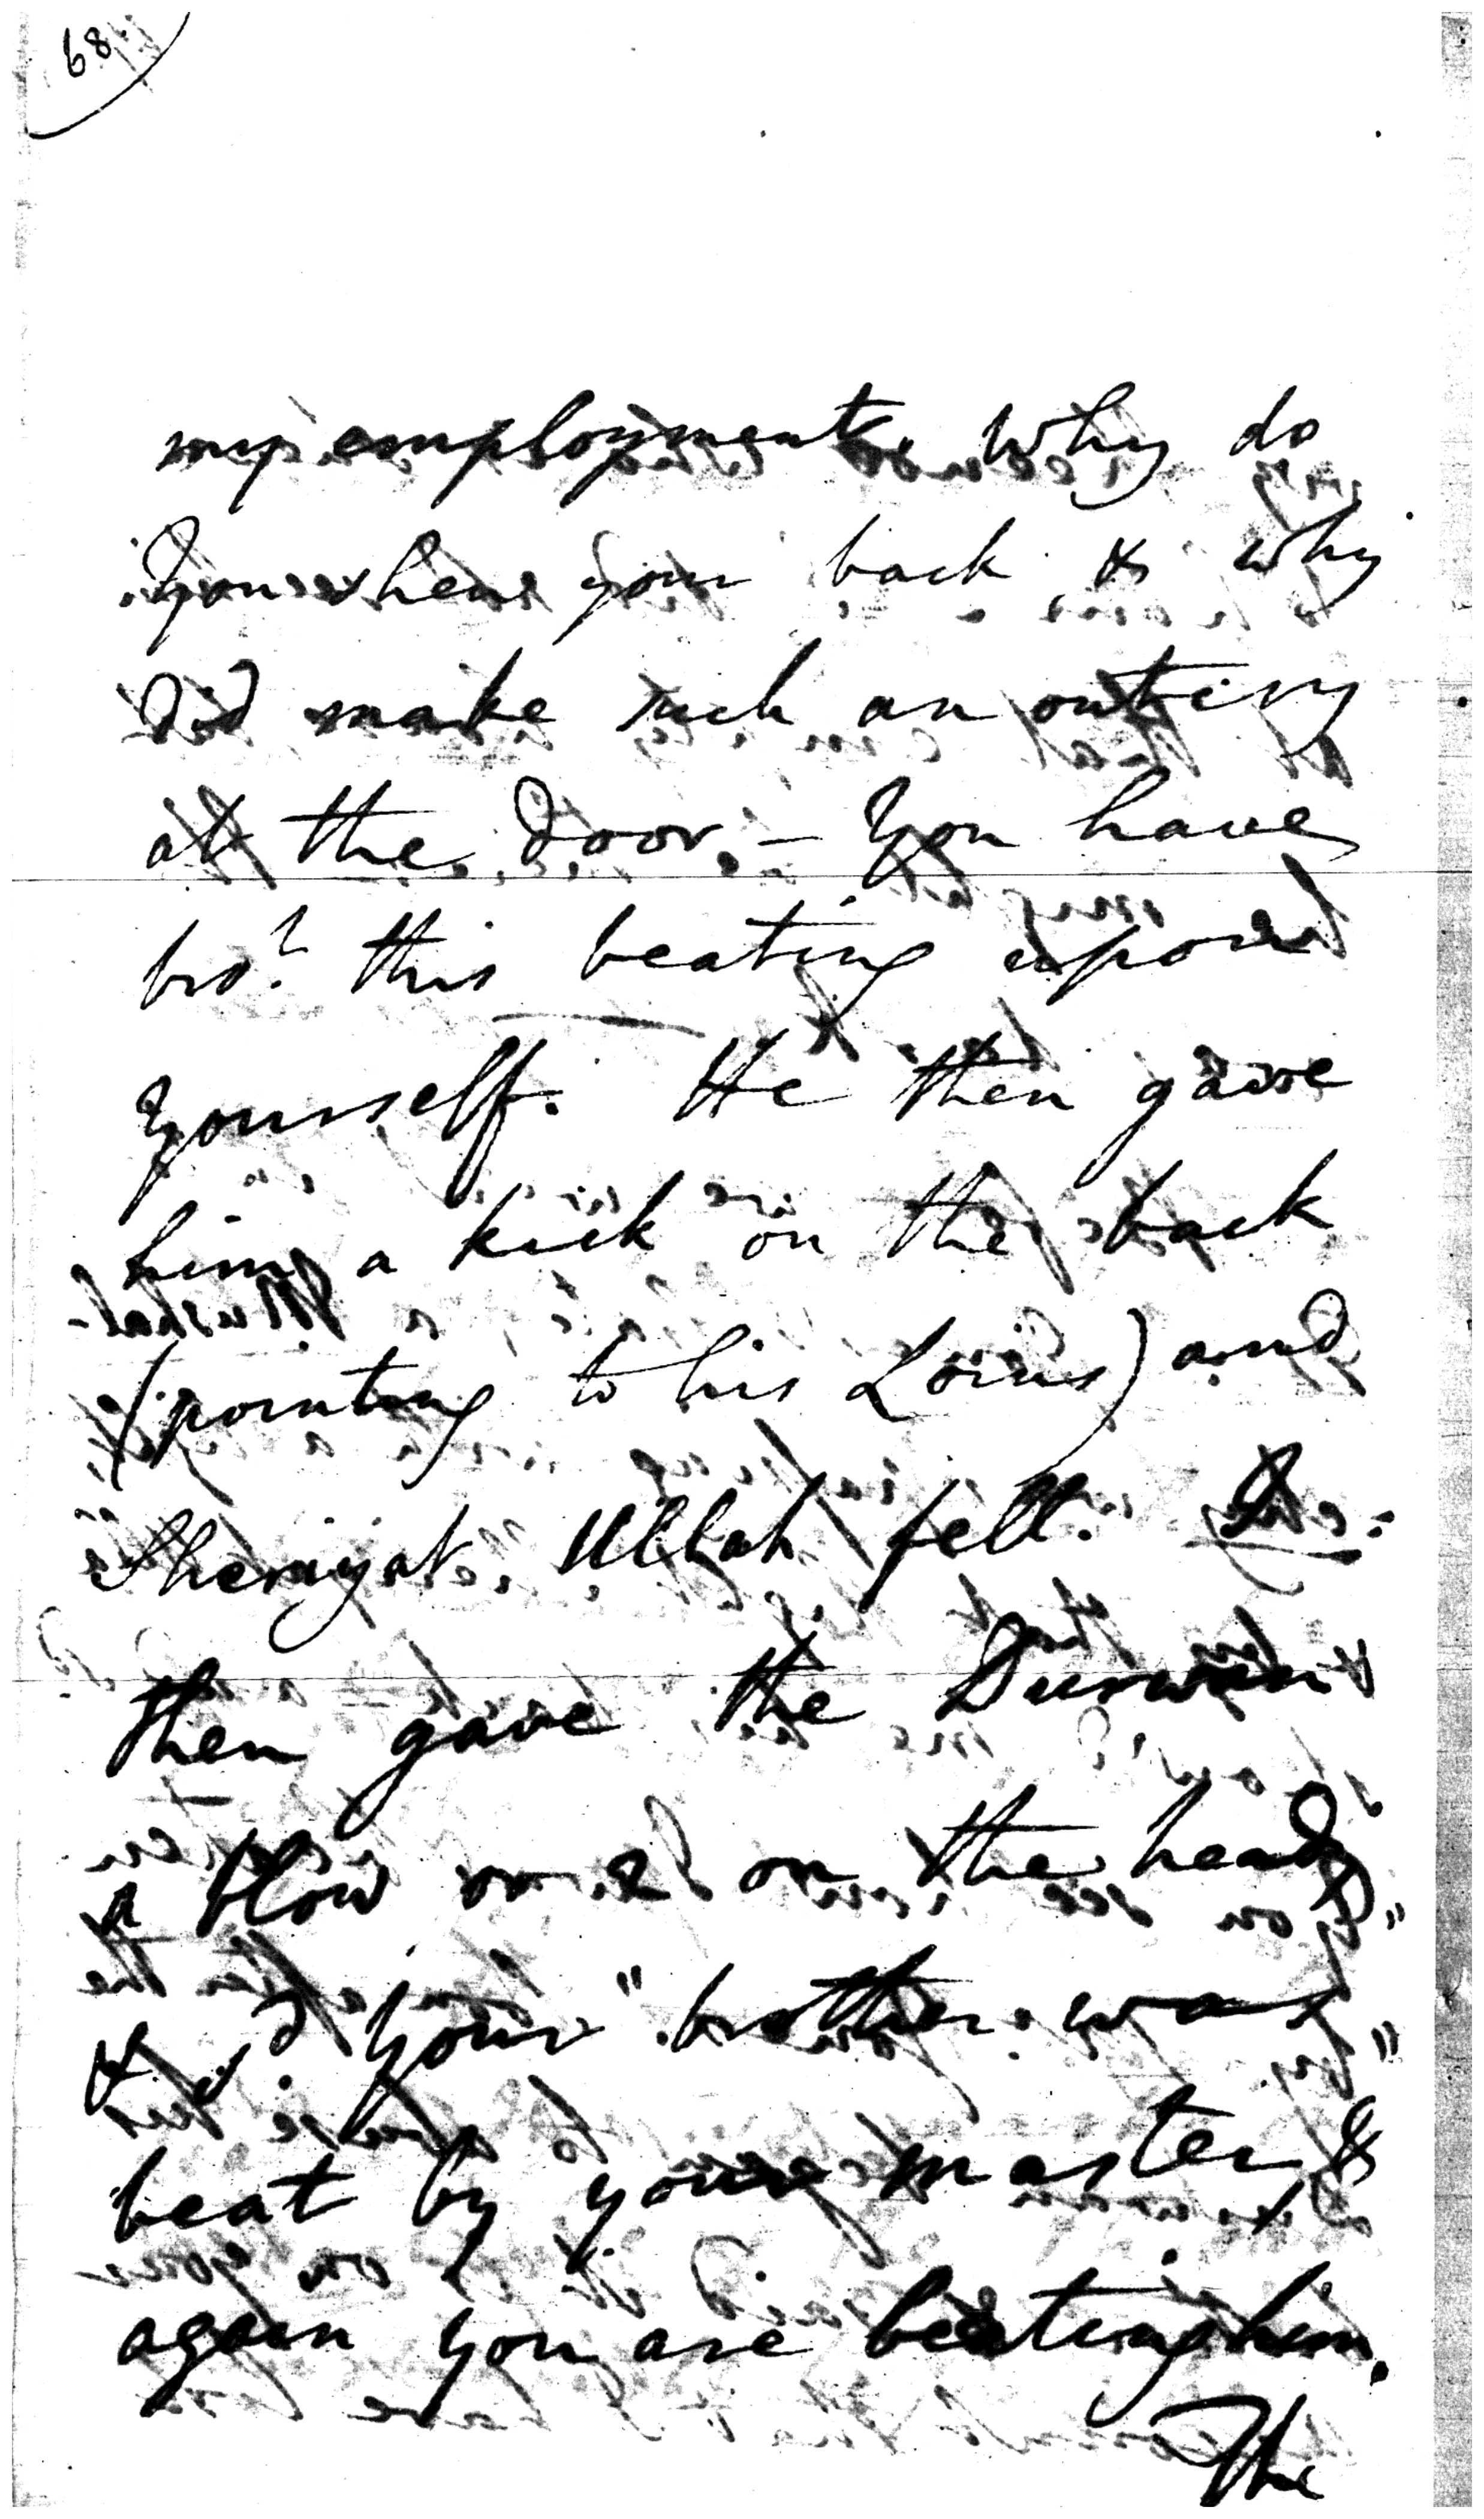 68
my employment, Why do
you shew your back & why
did make such an outcry
at the door. — You have
bro.t this beating upon
yourself. He then gave
him a kick on the back
(pointing to his Loins) and
Sheriyat Ullah fell. I
then gave the Durwan
a blow or 2 on the head
& s.d your "brother was
beat by your master &
again you are beating him.
The